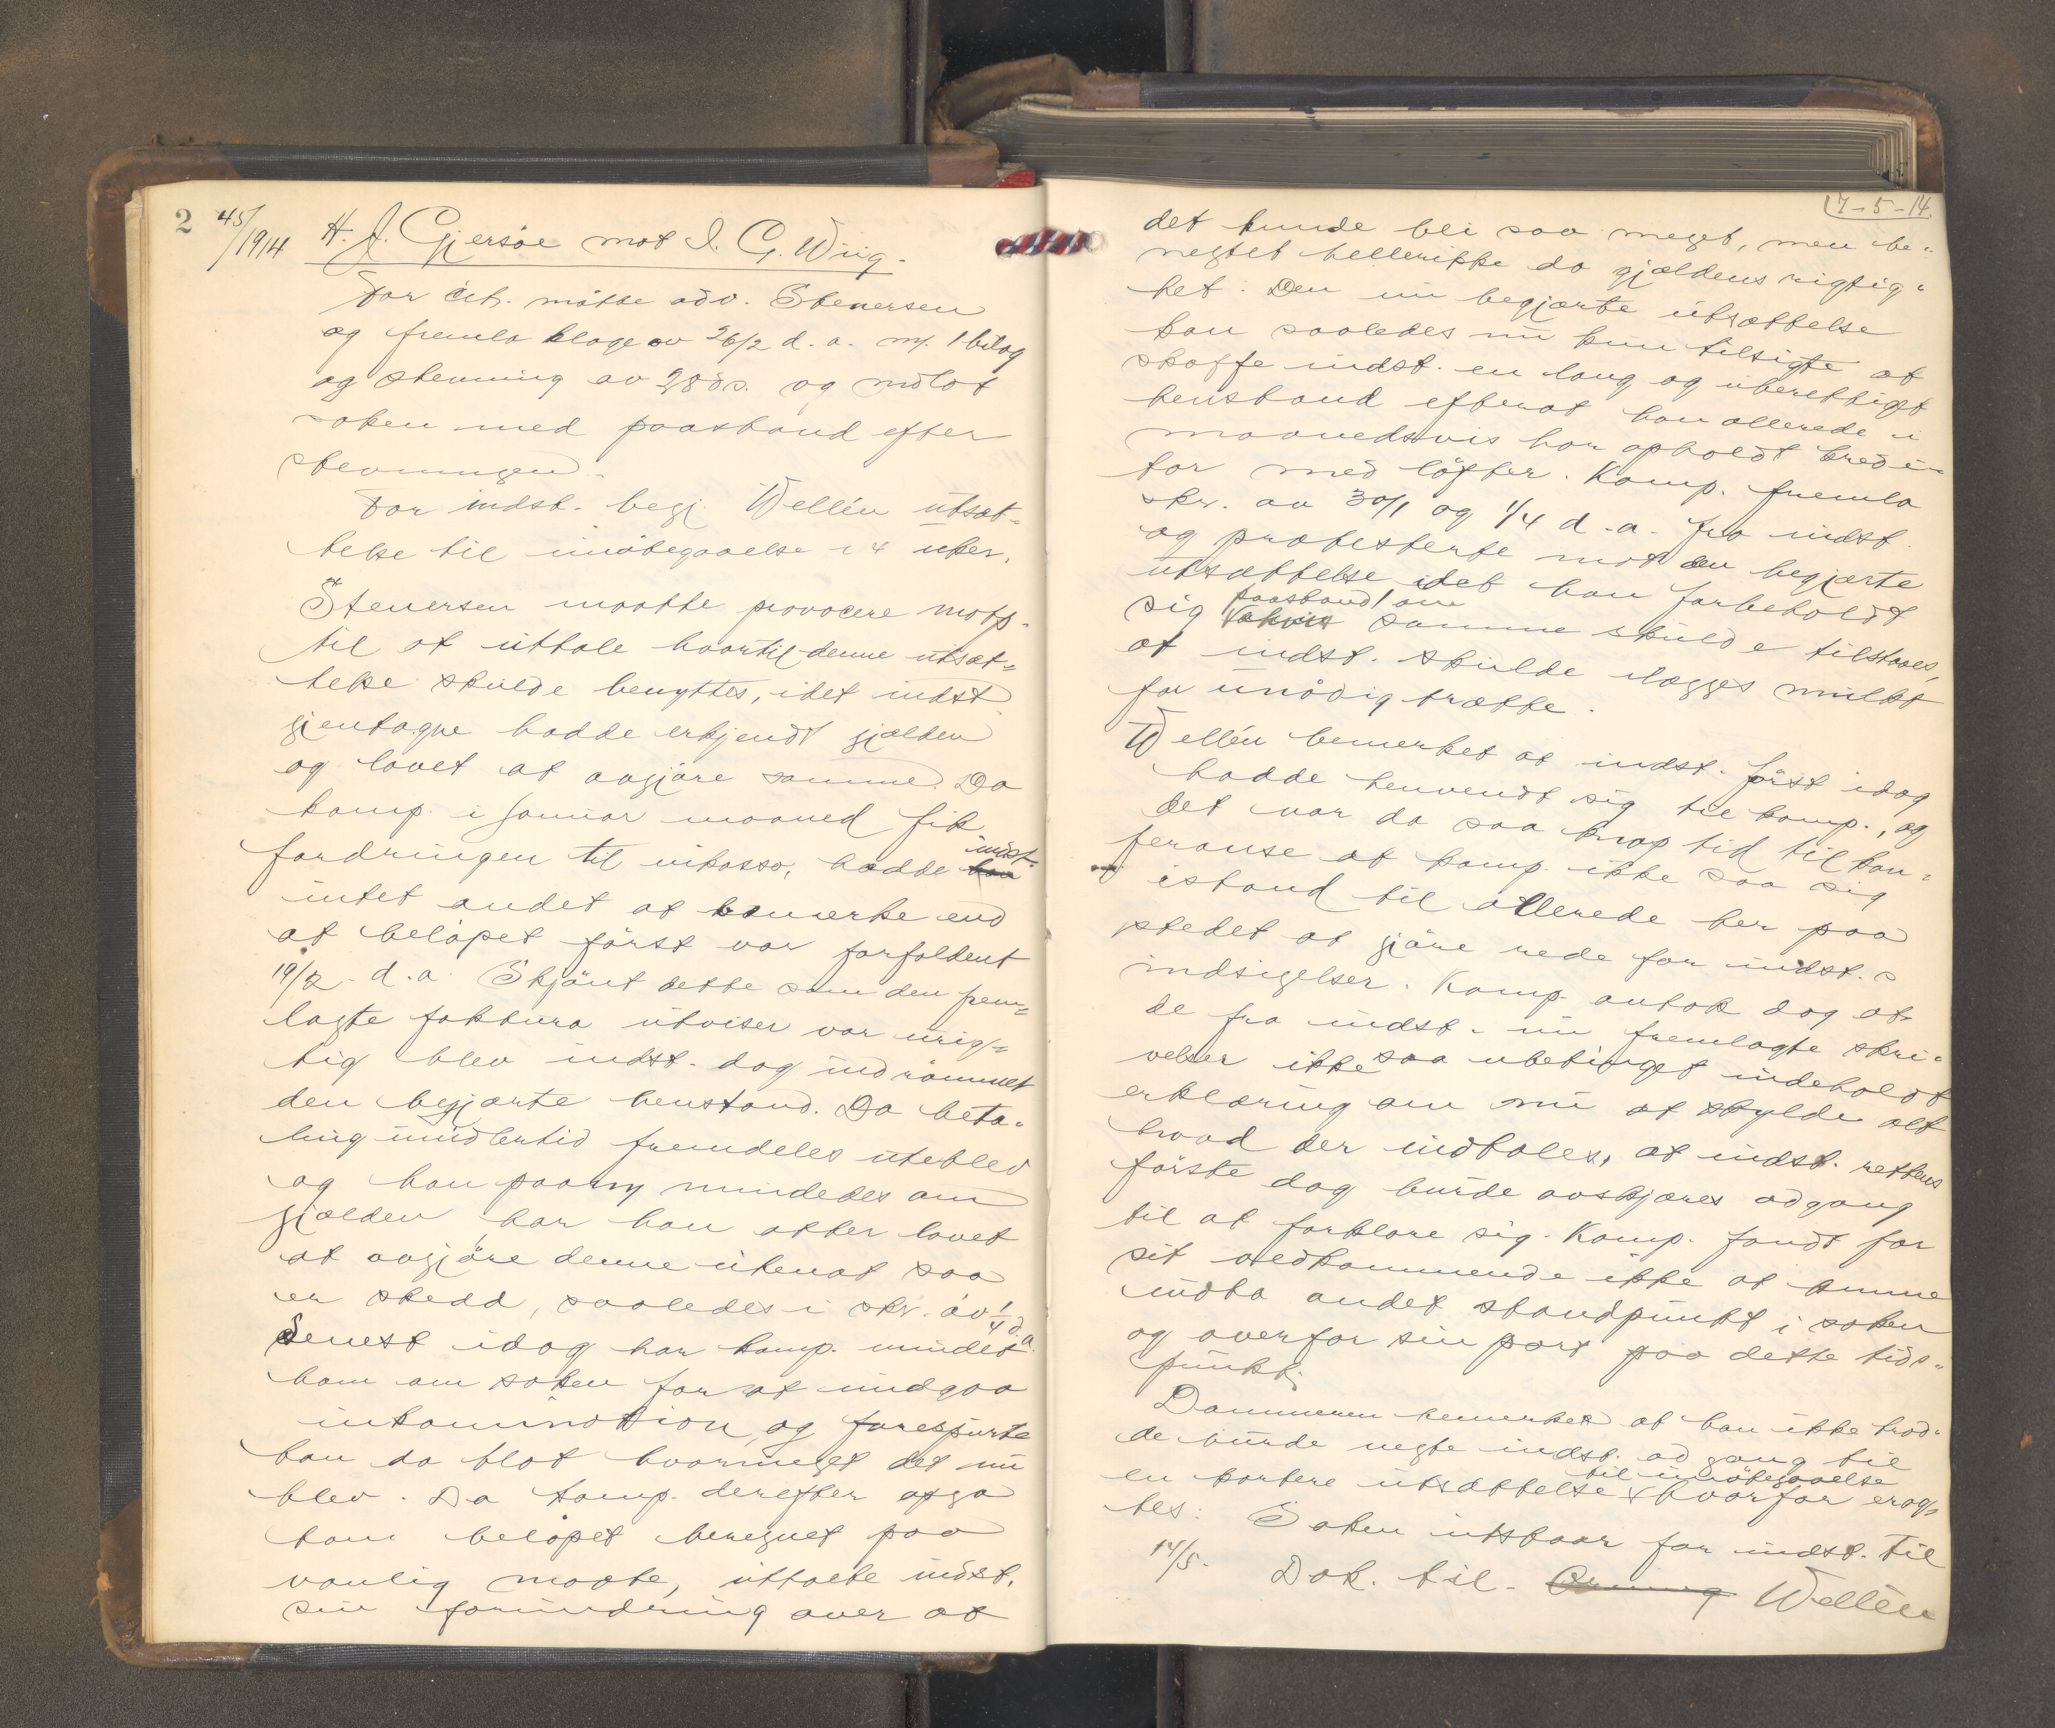 2
45/1914 H. J. Gjersöe mot I. G. Wiig.
For cit. mötte adv. Stenersen
og fremla klage av 26/2 d. a. m/. 1 bilag
og stevning av 28 ds. og indlot
saken med paastand efter
stevningen.
For indst. begj. Wellén utsæt-
telse til imötegaaelse i 4 uker.
Stenersen maatte provocere motp.
til at uttale hvortil denne utsæt-
telse skulde benyttes, idet indst.
gjentagne hadde erkjendt gjælden
og lovet at avgjöre samme. Da
komp. i januar maaned fik
fordringen til inkasso, hadde indst.
intet andet at bemerke end
at belöpet först var forfaldent
19/2 d. a. Skjönt dette som den frem-
lagte faktura utviser var urig-
tig blev indst. dog indrömmet
den begjærte henstand. Da beta-
ling imidlertid fremdeles uteblev
og han paany mindedes om
gjælden, har han atter lovet
at avgjöre denne uten at saa
er skedd, saaledes i skr. av 1/4 d.a.
Senest idag har komp. mindet
ham om saken for at undgaa
inkamination, og forespurte
han da blot hvormeget det nu
blev. Da komp. derefter opga
ham belöpet beregnet paa
vanlig maate, uttalte indst.
sin forundring over at
7-5-14.
det kunde bli saa meget, men be-
negtet hellerikke da gjældens rigtig-
het. Den nu begjærte utsættelse
kan saaledes nu kun tilsigte at
skaffe indst. en lang og uberettiget
henstand efterat han allerede i
maanedsvis har opholdt kredi-
tor med löfter. Komp. fremla
skr. av 30/1 og 1/4 d. a. fra indst.
og protesterte mot den begjærte
utsættelse idet han forbeholdt
sig paastand om
samme skulde tilstaaes,
at indst. skulde ilægges mulkt
for unödig trætte.
Wellén bemerket at indst. först idag
hadde henvendt sig til komp., og
det var da saa knap tid til kon-
feranse at komp. ikke saa sig
istand til allerede her paa
stedet at gjöre rede for indst.s
indsigelser. Komp. antok dog at
de fra indst. nu fremlagte skri-
velser ikke saa ubetinget indeholdt
erklæring om nu at skylde alt
hvad der indtales, at indst. rettens
förste dag burde avskjæres adgang
til at forklare sig. Komp. fandt for
sit vedkommende ikke at kunne
indta andet standpunkt i saken
og overfor sin part paa dette tids-
punkt.
Dommeren bemerket at han ikke trod-
de burde negte indst. adgang til
en kortere utsættelse til imötegaaelse hvorfor erag-
tes: Saken utstaar for indst. til
14/5. Dok. til Wellén